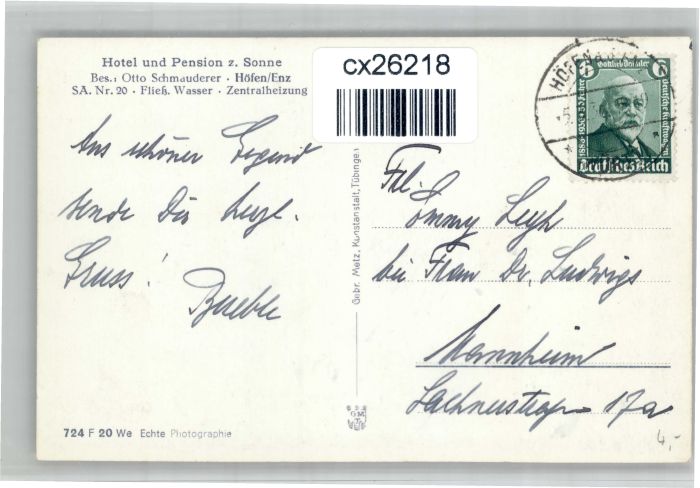 Hotel und Pension z. Sonne
Bes.: Otto Schmauderer · Höfen/Enz
SA. Nr. 20 · Fließ. Wasser · Zentralheizung
cx26218
Aus schöner Gegend
sende Dir herzl.
Gruss!
Frl.
Emmy Leyh
bei Frau Dr. Ludwigs
Mannheim
Lachnerstrasse 17a
Gebr. Metz, Kunstanstalt, Tübingen
GM
724 F 20 We Echte Photographie
4,-
HÖFEN
6 Gottlieb Daimler 6
1886-1936 · 50 Jahre
deutsche Kraftwagen
Deutsches Reich